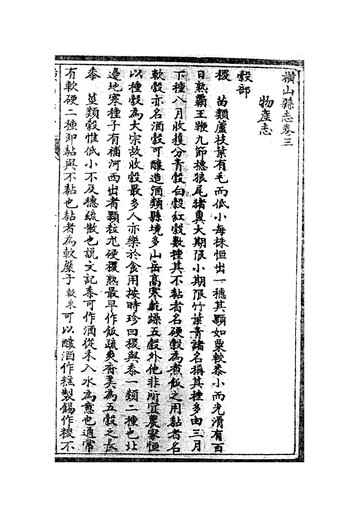 橫山縣志卷三
物產志
穀部
稷　苗類蘆枝葉有毛而低小每株恒出一穗其顆如粟較黍小而光滑有百
日熟霸王鞭九節穗狼尾猪糞大期限小期限竹葉青諸名稱其種多由三月
下種八月收獲分青穀白穀紅穀數種其不黏者名硬穀為煮飯之用黏者名
軟穀亦名酒穀可釀造酒類縣境多山岳高寒乾躁五穀外他非所宜農家恒
以種穀為大宗故收穀最多人亦樂於食用按時珍曰稷與黍一類二種也北
邊地寒種子有補河西出者顆粒尤硬稷熟最早作飯疏爽香美為五穀之長
黍　莖類穀惟低小不及穗疏散也說文記黍可作酒從禾入水為意也通常
有軟硬二種即黏與不黏也黏者為軟糜子軟黍可以釀酒作粧製錫作糉不